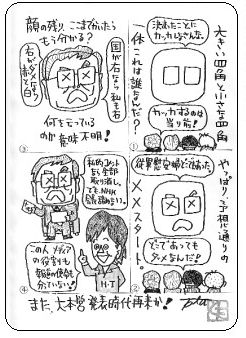 大きい四角と小さな四角
決まったことに
カッカしなさんな。
カッカするのは
当り前！
一体これは誰なんだ？
①
やっぱり予想通りの
ダメスタート。
従軍慰安婦どこであった
どこであっても
ダメなんだ！
②
顔の残り、ここまでかいたら
もう分かる？
国が右なら私も右
右がダメなら
赤と白？
何を言っている
のか意味不明！
③
私的コメント
なら全部
取り消し。
でも、NHK
会長諸なり。
H・T
この人、メディア
の役割も
報道の使命も
分っていない！
④
また、大本営発表時代再来か！